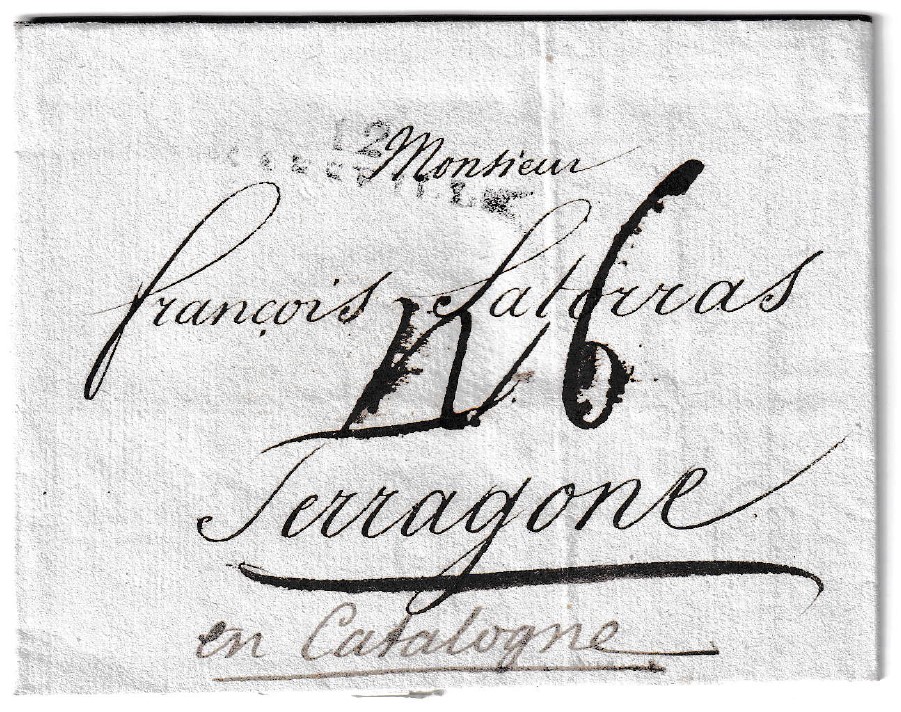 12
Monsieur
françois Latorras
R 6
Terragone
en Catalogne